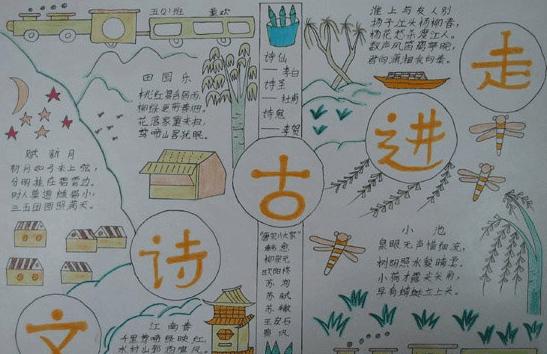 五(1)班
走
进
古
诗
文
淮上与友人别
扬子江头杨柳春，
杨花愁杀渡江人。
数声风笛离亭晚，
君向潇湘我向秦。
诗仙
——李白
诗圣
——杜甫
诗鬼
——李贺
田园乐
桃红复含宿雨，
柳绿更带春烟。
花落家童未扫，
莺啼山客犹眠。
赋新月
初月如弓未上弦，
分明挂在碧霄边。
时人莫道蛾眉小，
三五团圆照满天。
"唐宋八大家"
韩愈
柳宗元
欧阳修
苏洵
苏轼
苏辙
王安石
曾巩
小池
泉眼无声惜细流，
树阴照水爱晴柔。
小荷才露尖尖角，
早有蜻蜓立上头。
江南春
千里莺啼绿映红，
水村山郭酒旗风。